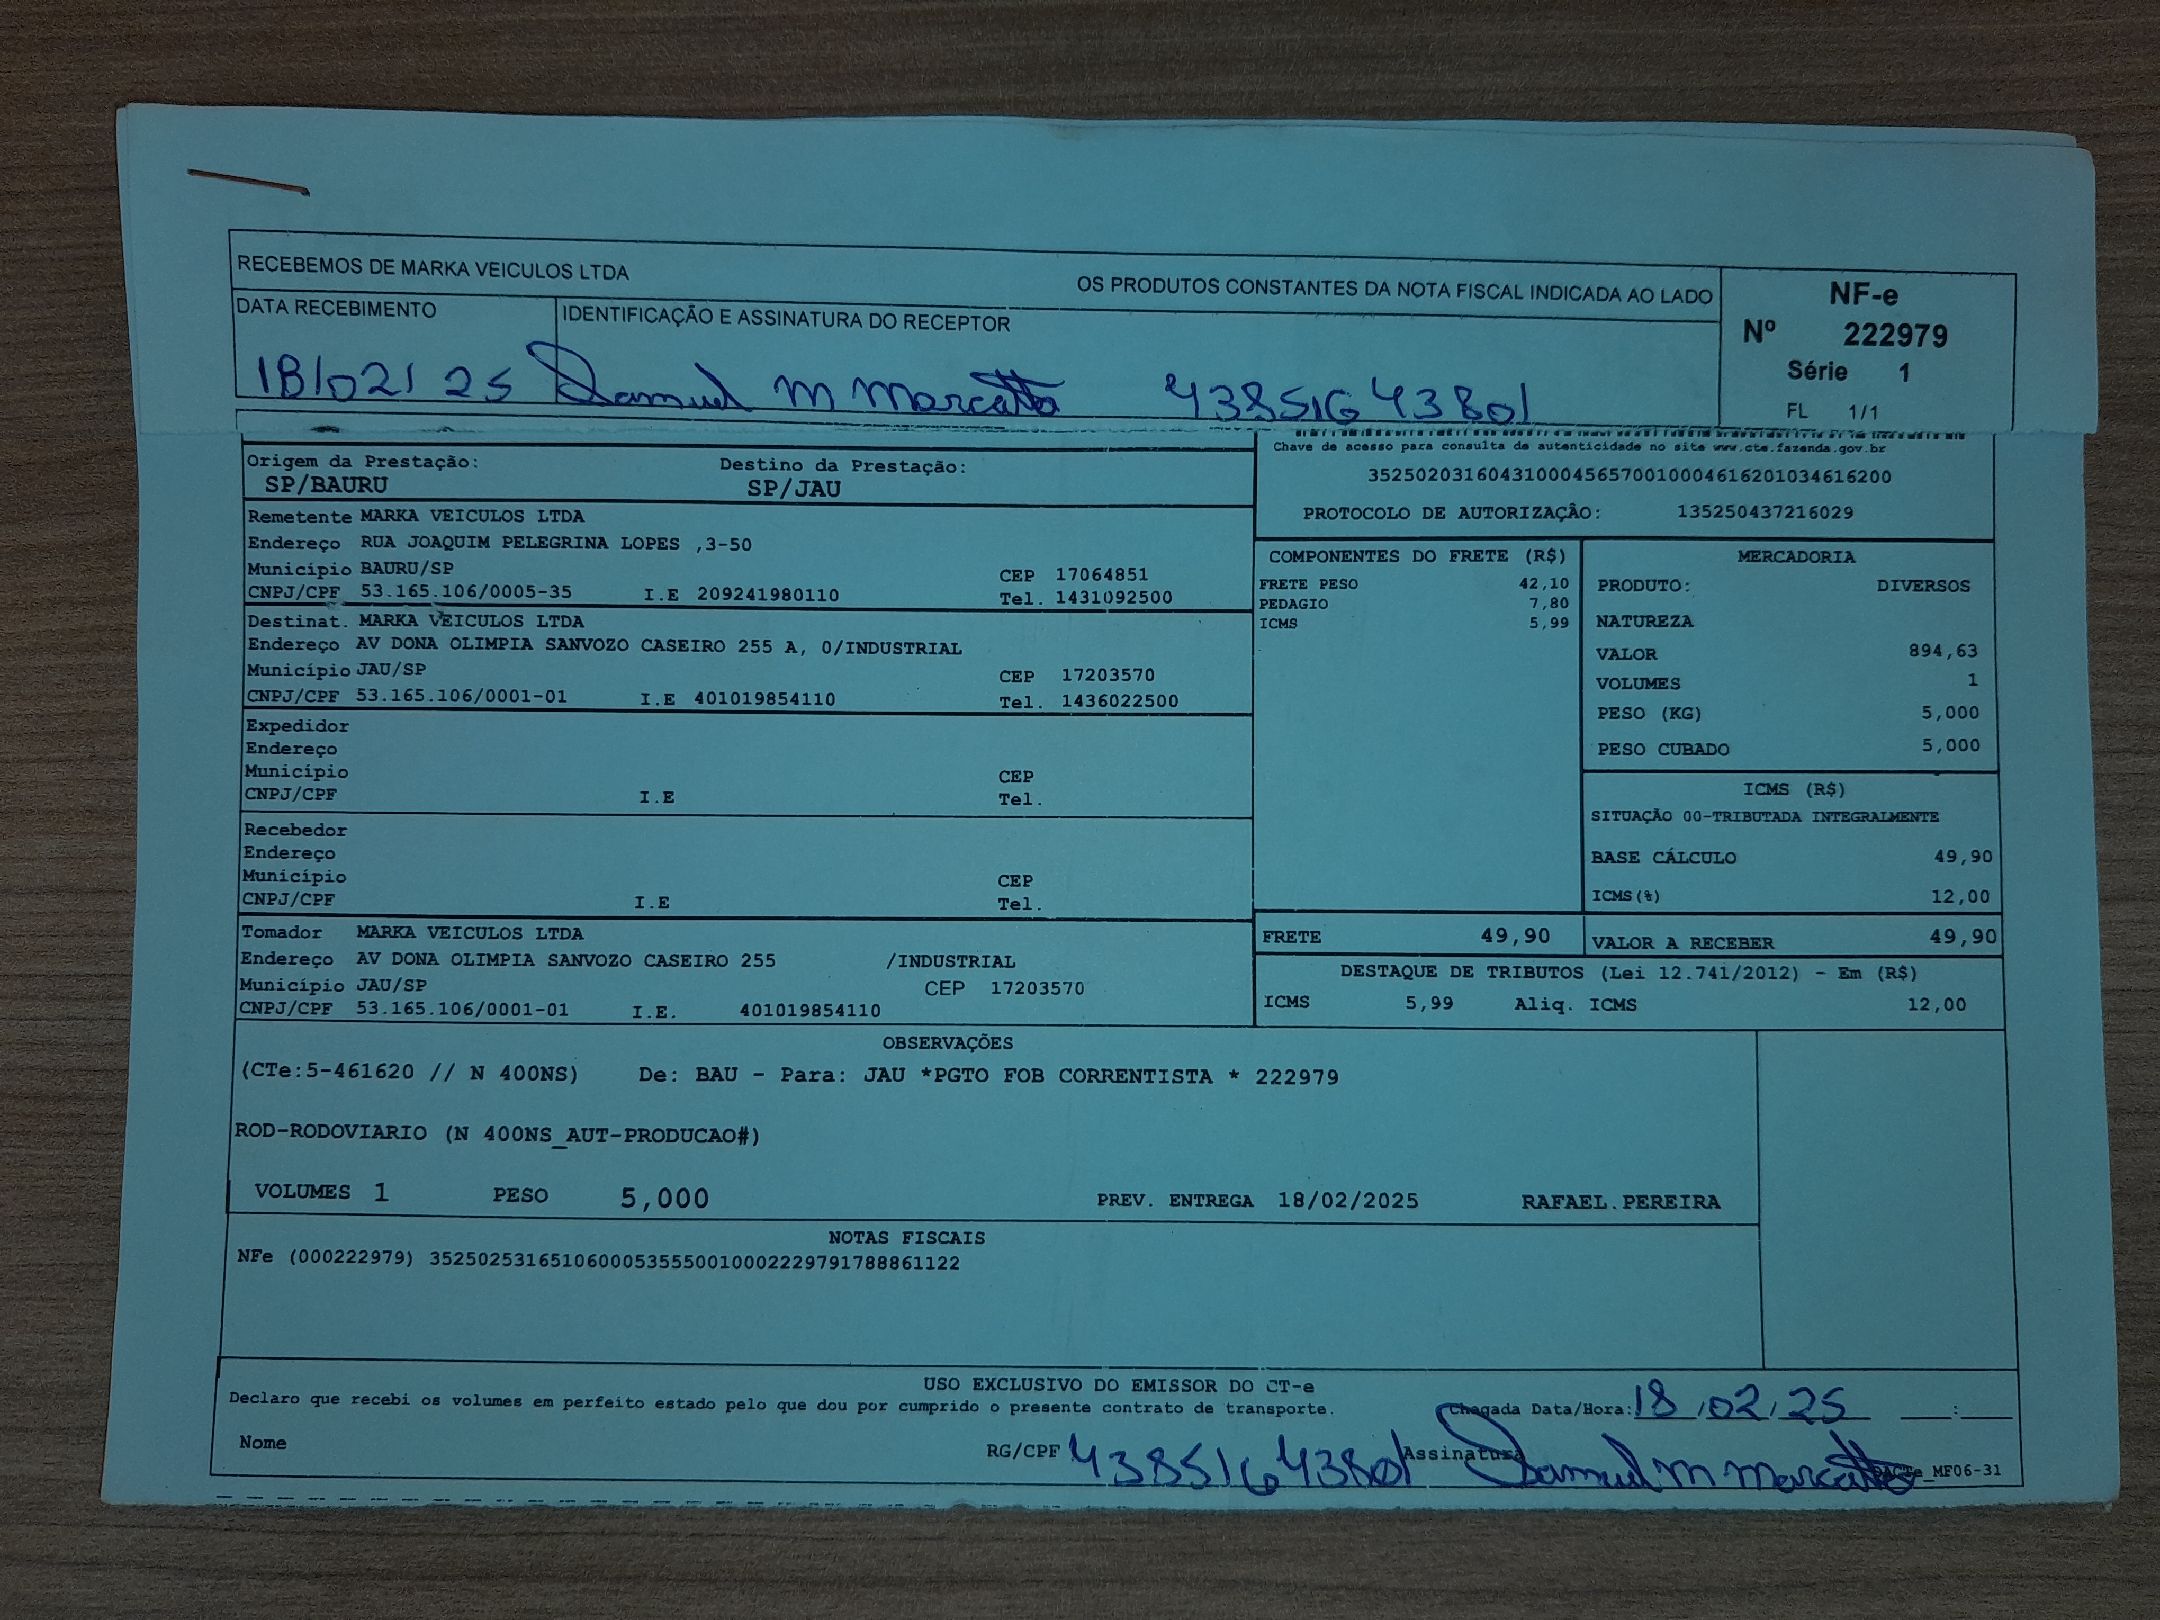 RECEBEMOS DE MARKA VEICULOS LTDA OS PRODUTOS CONSTANTES DA NOTA FISCAL INDICADA AO LADO
NF-e
Nº 222979
Série 1
FL 1/1
DATA RECEBIMENTO IDENTIFICAÇÃO E ASSINATURA DO RECEPTOR
18/02/25 Samuel M Marcatto 43851643801
Origem da Prestação: Destino da Prestação:
SP/BAURU SP/JAU
Chave de acesso para consulta de autenticidade no site www.cte.fazenda.gov.br
35250203160431000456570010004616201034616200
PROTOCOLO DE AUTORIZAÇÃO: 135250437216029
Remetente MARKA VEICULOS LTDA
Endereço RUA JOAQUIM PELEGRINA LOPES ,3-50
Município BAURU/SP CEP 17064851
CNPJ/CPF 53.165.106/0005-35 I.E 209241980110 Tel. 1431092500
Destinat. MARKA VEICULOS LTDA
Endereço AV DONA OLIMPIA SANVOZO CASEIRO 255 A, 0/INDUSTRIAL
Município JAU/SP CEP 17203570
CNPJ/CPF 53.165.106/0001-01 I.E 401019854110 Tel. 1436022500
Expedidor
Endereço
Município CEP
CNPJ/CPF I.E Tel.
Recebedor
Endereço
Município CEP
CNPJ/CPF I.E Tel.
Tomador MARKA VEICULOS LTDA
Endereço AV DONA OLIMPIA SANVOZO CASEIRO 255 /INDUSTRIAL
Município JAU/SP CEP 17203570
CNPJ/CPF 53.165.106/0001-01 I.E. 401019854110
COMPONENTES DO FRETE (R$)
FRETE PESO 42,10
PEDAGIO 7,80
ICMS 5,99
MERCADORIA
PRODUTO: DIVERSOS
NATUREZA
VALOR 894,63
VOLUMES 1
PESO (KG) 5,000
PESO CUBADO 5,000
ICMS (R$)
SITUAÇÃO 00-TRIBUTADA INTEGRALMENTE
BASE CÁLCULO 49,90
ICMS(%) 12,00
FRETE 49,90 VALOR A RECEBER 49,90
DESTAQUE DE TRIBUTOS (Lei 12.741/2012) - Em (R$)
ICMS 5,99 Aliq. ICMS 12,00
OBSERVAÇÕES
(CTe:5-461620 // N 400NS) De: BAU - Para: JAU *PGTO FOB CORRENTISTA * 222979
ROD-RODOVIARIO (N 400NS_AUT-PRODUCAO#)
VOLUMES 1 PESO 5,000 PREV. ENTREGA 18/02/2025 RAFAEL.PEREIRA
NOTAS FISCAIS
NFe (000222979) 35250253165106000535550010002229791788861122
USO EXCLUSIVO DO EMISSOR DO CT-e
Declaro que recebi os volumes em perfeito estado pelo que dou por cumprido o presente contrato de transporte. Chegada Data/Hora: 18/02/25 ___:___
Nome RG/CPF 43851643801 Assinatura Samuel M Marcatto DACTe_MF06-31